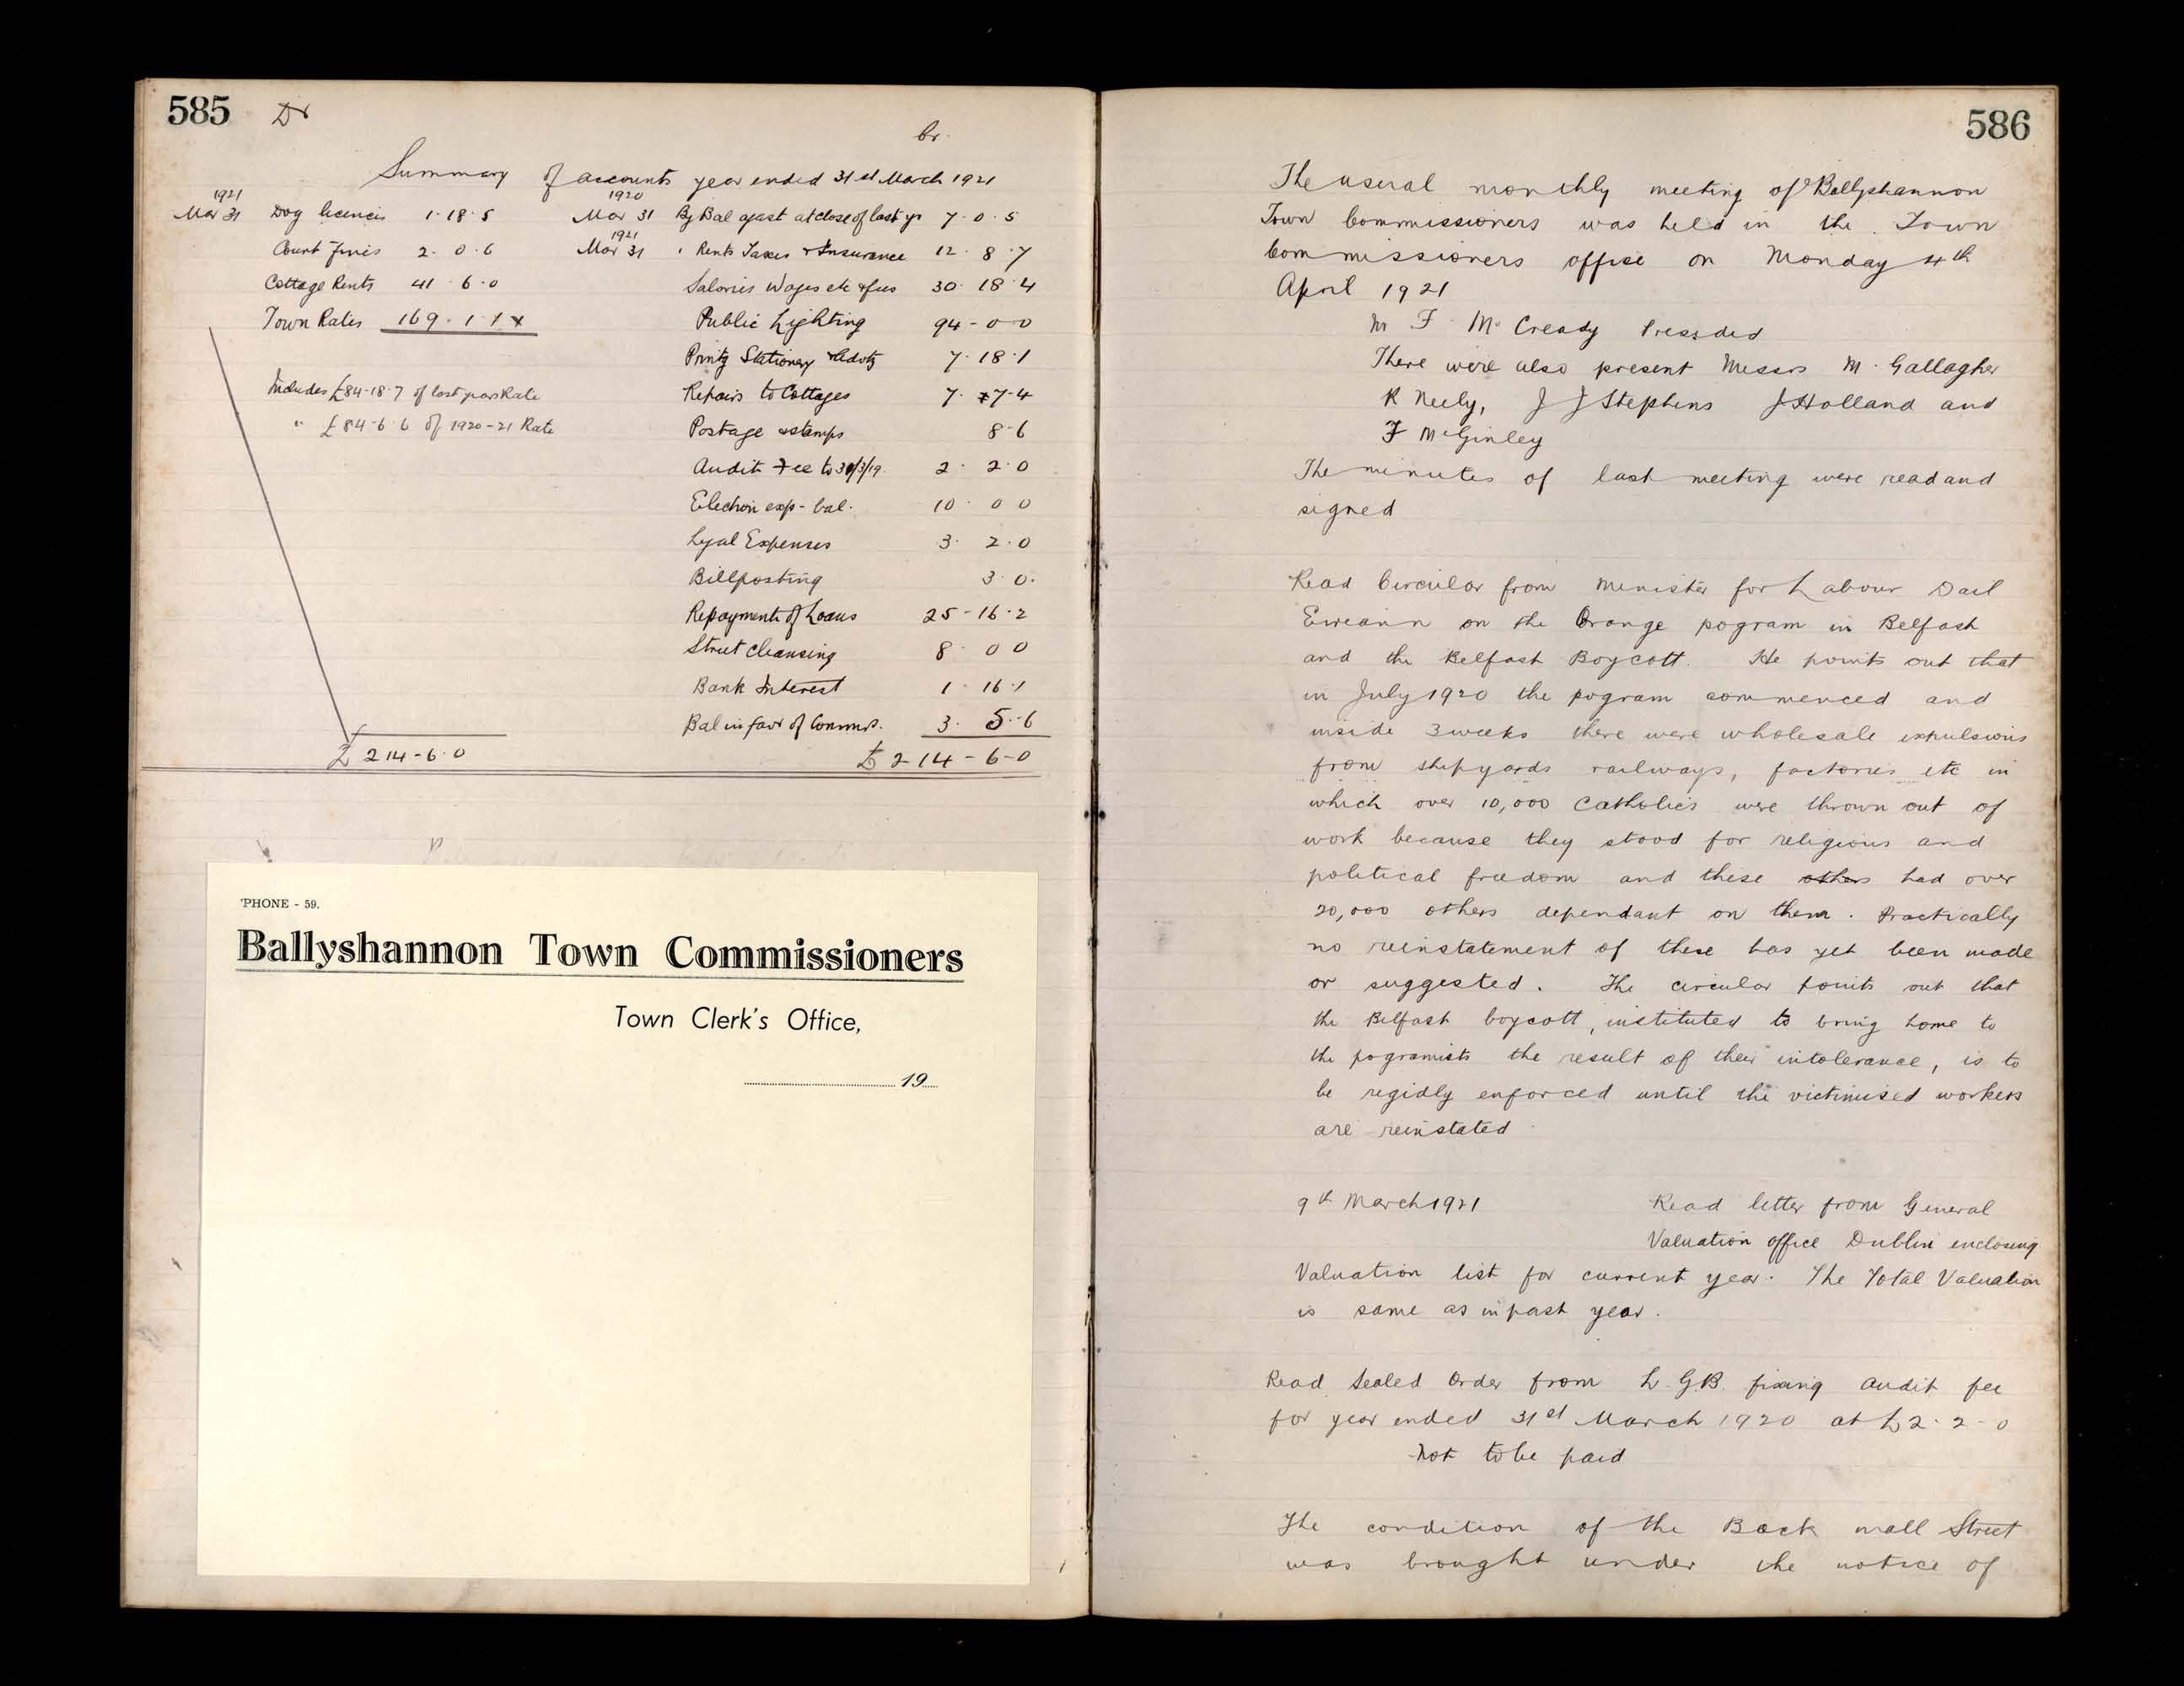 585 Dr
Cr.
Summary of accounts year ended 31st March 1921
1921
Mar 31 Dog licences 1-18-5
Court Fines 2-0-6
Cottage Rents 41-6-0
Town Rates 169-1-1 x
Includes £84-18-7 of last years Rate
" £84-6-6 of 1920-21 Rate
£214-6-0
1920
Mar 31 By Bal agast at close of last yr 7-0-5
1921
Mar 31 " Rents Taxes & Insurance 12-8-7
Salaries Wages etc & fees 30-18-4
Public Lighting 94-0-0
Printg Stationery & Advtg 7-18-1
Repairs to Cottages 7-7-4
Postage & stamps 8-6
Audit Fee to 31/3/19 2-2-0
Election exp - bal. 10-0-0
Legal Expenses 3-2-0
Billposting 3-0.
Repayment of Loans 25-16-2
Street cleansing 8-0-0
Bank Interest 1-16-1
Bal in favr of Commrs. 3-5-6
£214-6-0
'PHONE - 59.
Ballyshannon Town Commissioners
Town Clerk's Office,
19
586
The usual monthly meeting of Ballyshannon
Town Commissioners was held in the Town
Commissioners office on Monday 4th
April 1921
Mr F McCready Presided
There were also present Messrs M. Gallagher
R Neely, J J Stephens J Holland and
F McGinley
The minutes of last meeting were read and
signed
Read Circular from Minister for Labour Dail
Eireann on the Orange pogram in Belfast
and the Belfast Boycott. He points out that
in July 1920 the pogram commenced and
inside 3 weeks there were wholesale expulsions
from shipyards railways, factories etc in
which over 10,000 Catholics were thrown out of
work because they stood for religious and
political freedom and these others had over
20,000 others dependant on them. Practically
no reinstatement of these has yet been made
or suggested. The circular points out that
the Belfast boycott, instituted to bring home to
the pogramists the result of their intolerance, is to
be regidly enforced until the victimised workers
are reinstated
9th March 1921 Read letter from General
Valuation office Dublin enclosing
Valuation list for current year. The Total Valuation
is same as in past year.
Read Sealed Order from L.G.B. fixing Audit fee
for year ended 31st March 1920 at £2-2-0
Not to be paid
The condition of the Back mall Street
was brought under the notice of